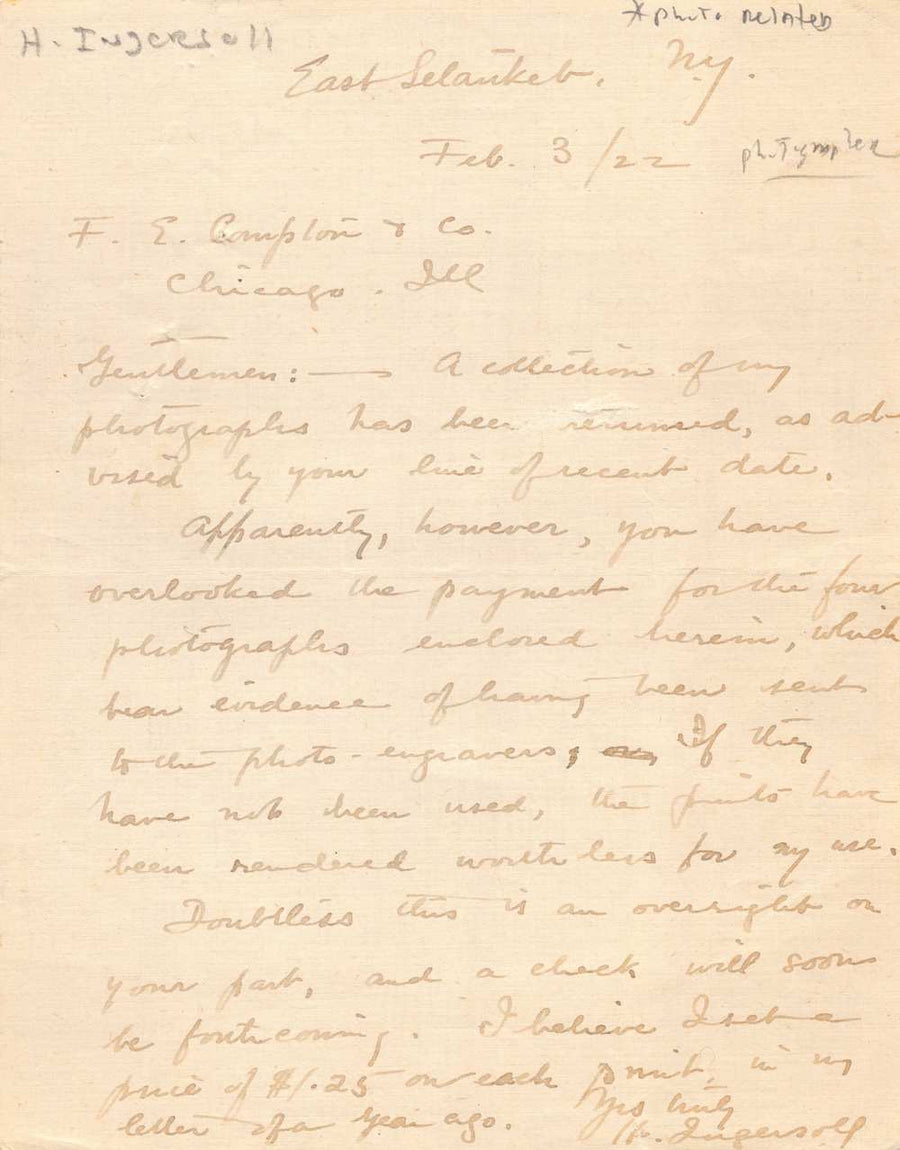 H. Ingersoll
* photo related
East Setauket, N.Y.
Feb. 3/22
photographer
F. E. Compton & Co.
Chicago. Ill
Gentlemen: — A collection of my
photographs has been returned, as ad-
vised by your line of recent date.
Apparently, however, you have
overlooked the payment for the four
photographs enclosed herein, which
bear evidence of having been sent
to the photo-engravers; If they
have not been used, the prints have
been rendered worthless for my use.
Doubtless this is an oversight on
your part, and a check will soon
be forthcoming. I believe I set a
price of $1.25 on each print, in my
letter of a year ago. Yrs truly
H. Ingersoll